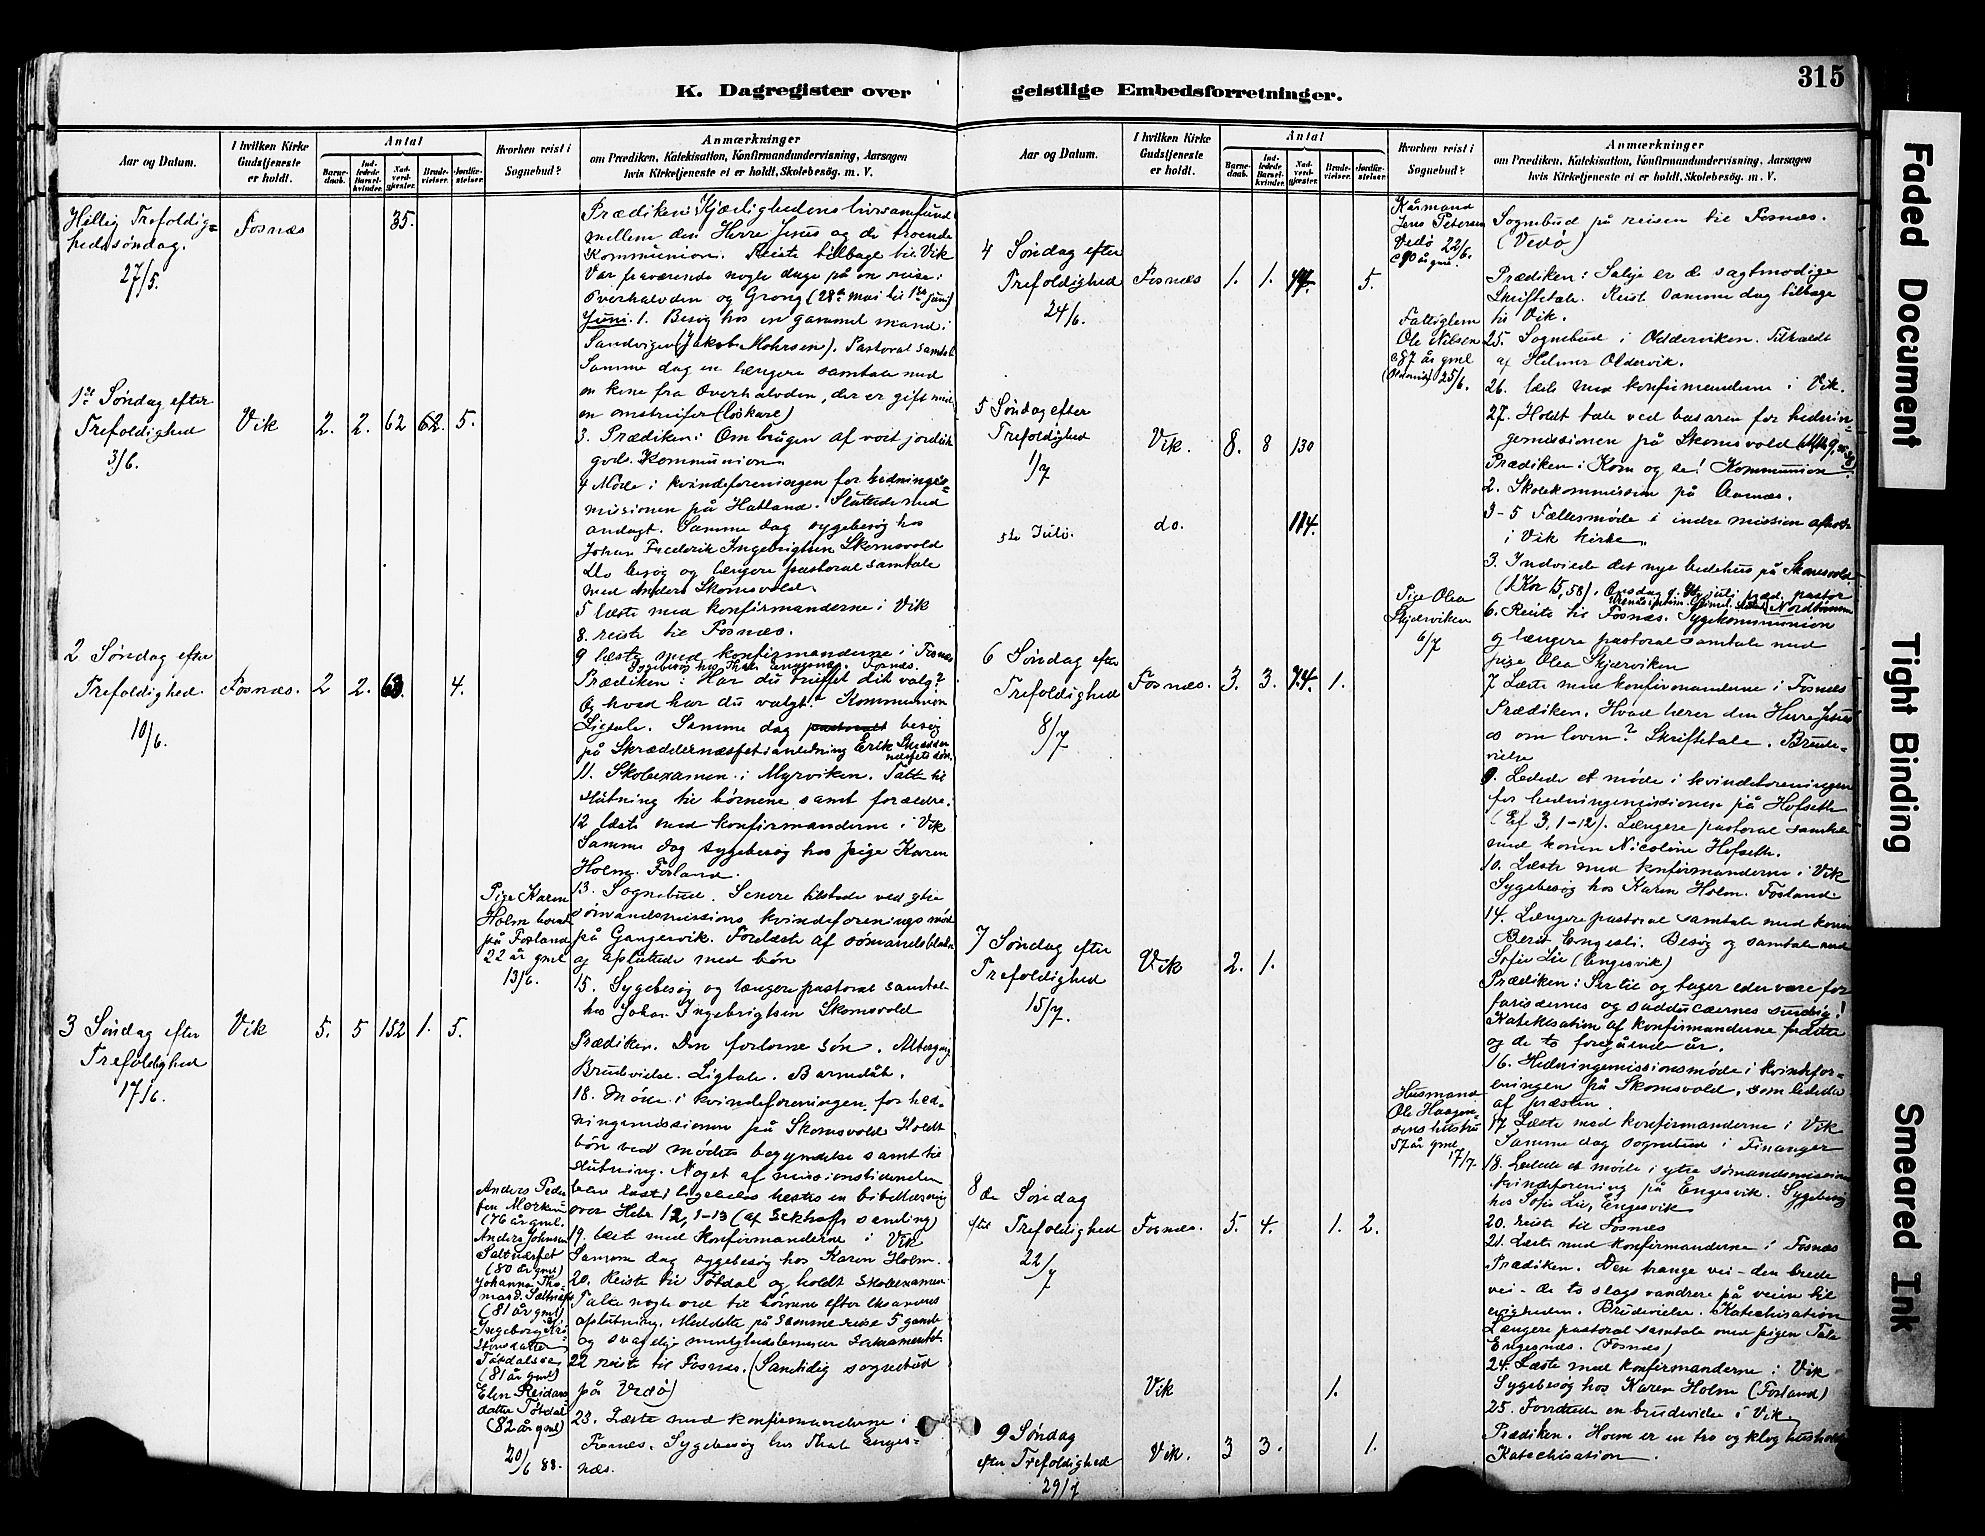 315
K. Dagregister over geistlige Embedsforretninger.
Aar og Datum.
I hvilken Kirke Gudstjeneste er holdt.
Antal
Barnedaab.
Indledede Barselkvinder.
Nadverdgjester.
Brudevielser.
Jordfæstelser.
Hvorhen reist i Sognebud?
Anmærkninger
om Prædiken, Katekisation, Konfirmandundervisning, Aarsagen
hvis Kirketjeneste ei er holdt, Skolebesøg. m. V.
Hellig Trefoldig=
hedssøndag.
27/5.
Fosnæs
35.
Prædiken: Kjærlighedens livssamfund
mellem den Herre Jesus og de troende
Kommunion. Reiste tilbage til Vik
Var fraværende nogle dage på en reise i
Overhalvden og Grong (28de mai til 1ste juni)
Juni. 1. Besøg hos en gammel mand i
Sandvigen (Jakob Mohrsen). Pastoral samtale
Samme dag en længere samtale med
en kone fra Overhalvden, der er gift med
en omstreifer (løskare)
1ste Søndag efter
Trefoldighed
3/6.
Vik
2.
2.
62
62.
5.
3. Prædiken: Om brugen af vort jordisk
gods. Kommunion.
4 Møde i kvindeforeningen for hednings=
missionen på Hatland. Sluttede med
andagt. Samme dag sygebesøg hos
Johan Frederik Ingebrigtsen Skomsvold
Do besøg og længere pastoral samtale
med Anders Skomsvold.
5 læste med konfirmanderne i Vik
8. reiste til Fosnæs.
9 læste med konfirmanderne i Fosnæs
Sygebesøg hos Thale Engesnæs. Fosnæs.
2 Søndag efter
Trefoldighed.
10/6.
Fosnæs.
2
2.
63.
4.
Prædiken: Har du truffet dit valg?
Og hvad har du valgt? Kommunion
Ligtale. Samme dag pastoralt besøg
på Skræddernæsset i anledning Erik Skrædder
næssets død.
11. Skoleexamen i Myrviken. Talte til
slutning til børnene samt forældre.
12 læste med konfirmanderne i Vik
Samme dag sygebesøg hos pige Karen
Holm. Fosland.
Pige Karen
Holm
på Fosland
22 år gml
13/6.
13. Sognebud. Senere tilstede ved ytre
sømandsmissions kvindeforenings møde
på Gangsvik. Forelæste af sømandsbladet
og afsluttede med bøn
15. Sygebesøg og længere pastoral samtale
hos Johan Ingebrigtsen Skomsvold
3 Søndag efter
Trefoldighed
17/6.
Vik
5.
5
152
1.
5.
Prædiken. Den forlorne søn. Altergang
Brudevielse. Ligtale. Barnedåb.
18. Møde i kvindeforeningen for hed=
ningemissionen på Skomsvold. Holdt
bøn ved mødets begyndelse samt til
slutning. Noget af missionstidenden
blev læst; ligeledes holdtes en bibellæsning
over Hebr 12, 1-13 (af Eckhoffs samling)
Anders Peder
sen Mørkve
(76 år gml.
Anders Johnsen
Saltnæsset
(80 år gml)
Johanna Tho
masd. Saltnæss
(81 år gml)
Ingeborg Kri
stensdatter
Tøtdalsva
(81 år gml)
Elen Reidars
datter Tøtdal
(82 år gml)
20/6 88.
19. læst med konfirmanderne i Vik
Samme dag sygebesøg hos Karen Holm.
20. Reiste til Tøtdal og holdt skoleexamen
Talte nogle ord til børnene efter eksamenens
afslutning. Meddelte på samme reise 5 gamle
og svagelige menighedslemmer sakramentet.
22 reiste til Fosnæs. (Samtidig sognebud
på Vedø)
23. Læste med konfirmanderne i
Fosnæs. Sygebesøg hos Thale Enges=
næs.
Aar og Datum.
I hvilken Kirke Gudstjeneste er holdt.
Antal
Barnedaab.
Indledede Barselkvinder.
Nadverdgjester.
Brudevielser.
Jordfæstelser.
Hvorhen reist i Sognebud?
Anmærkninger
om Prædiken, Katekisation, Konfirmandundervisning, Aarsagen
hvis Kirketjeneste ei er holdt, Skolebesøg. m. V.
Kårmand
Jens Petersen
Vedø 22/6.
90 år gml.
Sognebud på reisen til Fosnæs.
(Vedø)
4 Søndag efter
Trefoldighed
24/6.
Fosnæs
1.
1.
44.
5.
Prædiken: Salige er de sagtmodige
Skriftetale. Reist samme dag tilbage
til Vik.
Fattiglem
Ole Nilsen
87 år gml
25/6.
25. Sognebud i Oldderviken. Tilkaldt
af Helmer Oldervik.
26. læste med konfirmanderne i Vik.
27. Holdt tale ved basaren for hednin=
gemissionen på Skomsvold
5 Søndag efter
Trefoldighed
1/7
Vik.
8.
8
130
Prædiken: Kom og se! Kommunion.
2. Skolekommission på Aunæs.
5te Juli.
do.
114.
3-5 Fællesmøde i indre mission afholdt
i Vik kirke.
3. Indviede det nye bedehus på Skomsvold
(1 Kor 15, 58).
Pige Olea
Skjærviken
6/7
6. Reiste til Fosnæs. Sygekommunion
og længere pastoral samtale med
pige Olea Skjærviken
7 Læste med konfirmanderne i Fosnæs
6 Søndag efter
Trefoldighed
8/7
Fosnæs.
3.
3.
74.
1.
Prædiken. Hvad lærer den Herre Jesus
os om loven? Skriftetale. Brude=
vielse
9. Ledede et møde i kvindeforeningen
for hedningemissionen på Hofseth
(Ef 3, 1-12). Længere pastoral samtale
med konen Nicoline Hofseth.
10. Læste med konfirmanderne i Vik
Sygebesøg hos Karen Holm. Fosland
14. Længere pastoral samtale med konen
Berit Engesli. Besøg og samtale med
Sofie Lie (Engesvik)
7 Søndag efter
Trefoldighed
15/7.
Vik
2.
1.
Prædiken: Ser til og tager eder vare for
farisæernes og sadducæernes surdeig!
Katekisation af konfirmanderne
og de to foregående år.
16. Hedningemissionsmøde i kvindefor=
eningen på Skomsvold, som lededes
af præsten
Husmand
Ole Haagen=
sens hustru
57 år gml
17/7.
17. Læste med konfirmanderne i Vik
Samme dag sognebud i Finanger
18. Ledede et møde i ytre sømandsmissions
kvindeforening på Engesvik. Sygebesøg
hos Sofie Lie, Engesvik
20. reiste til Fosnæs
21. Læste med konfirmanderne i Fosnæs
8de Søndag
efter Trefoldighed
22/7
Fosnæs.
5.
4.
1.
2.
Prædiken. Den trange vei - den brede
vei - de to slags vandrere på veien til
evigheden. Brudevielse. Katechisation
Længere pastoral samtale med pigen Tale
Engesnæs. (Fosnæs)
24. Læste med konfirmanderne i Vik
Sygebesøg hos Karen Holm (Fosland)
Vik
1.
25. Forrettede en brudevielse i Vik
9 Søndag
efter Trefoldighed
29/7
Vik.
3
3.
1.
Prædiken. Hvem er en tro og klog husholder
Katechisation.
Faded Document
Tight Binding
Smeared Ink